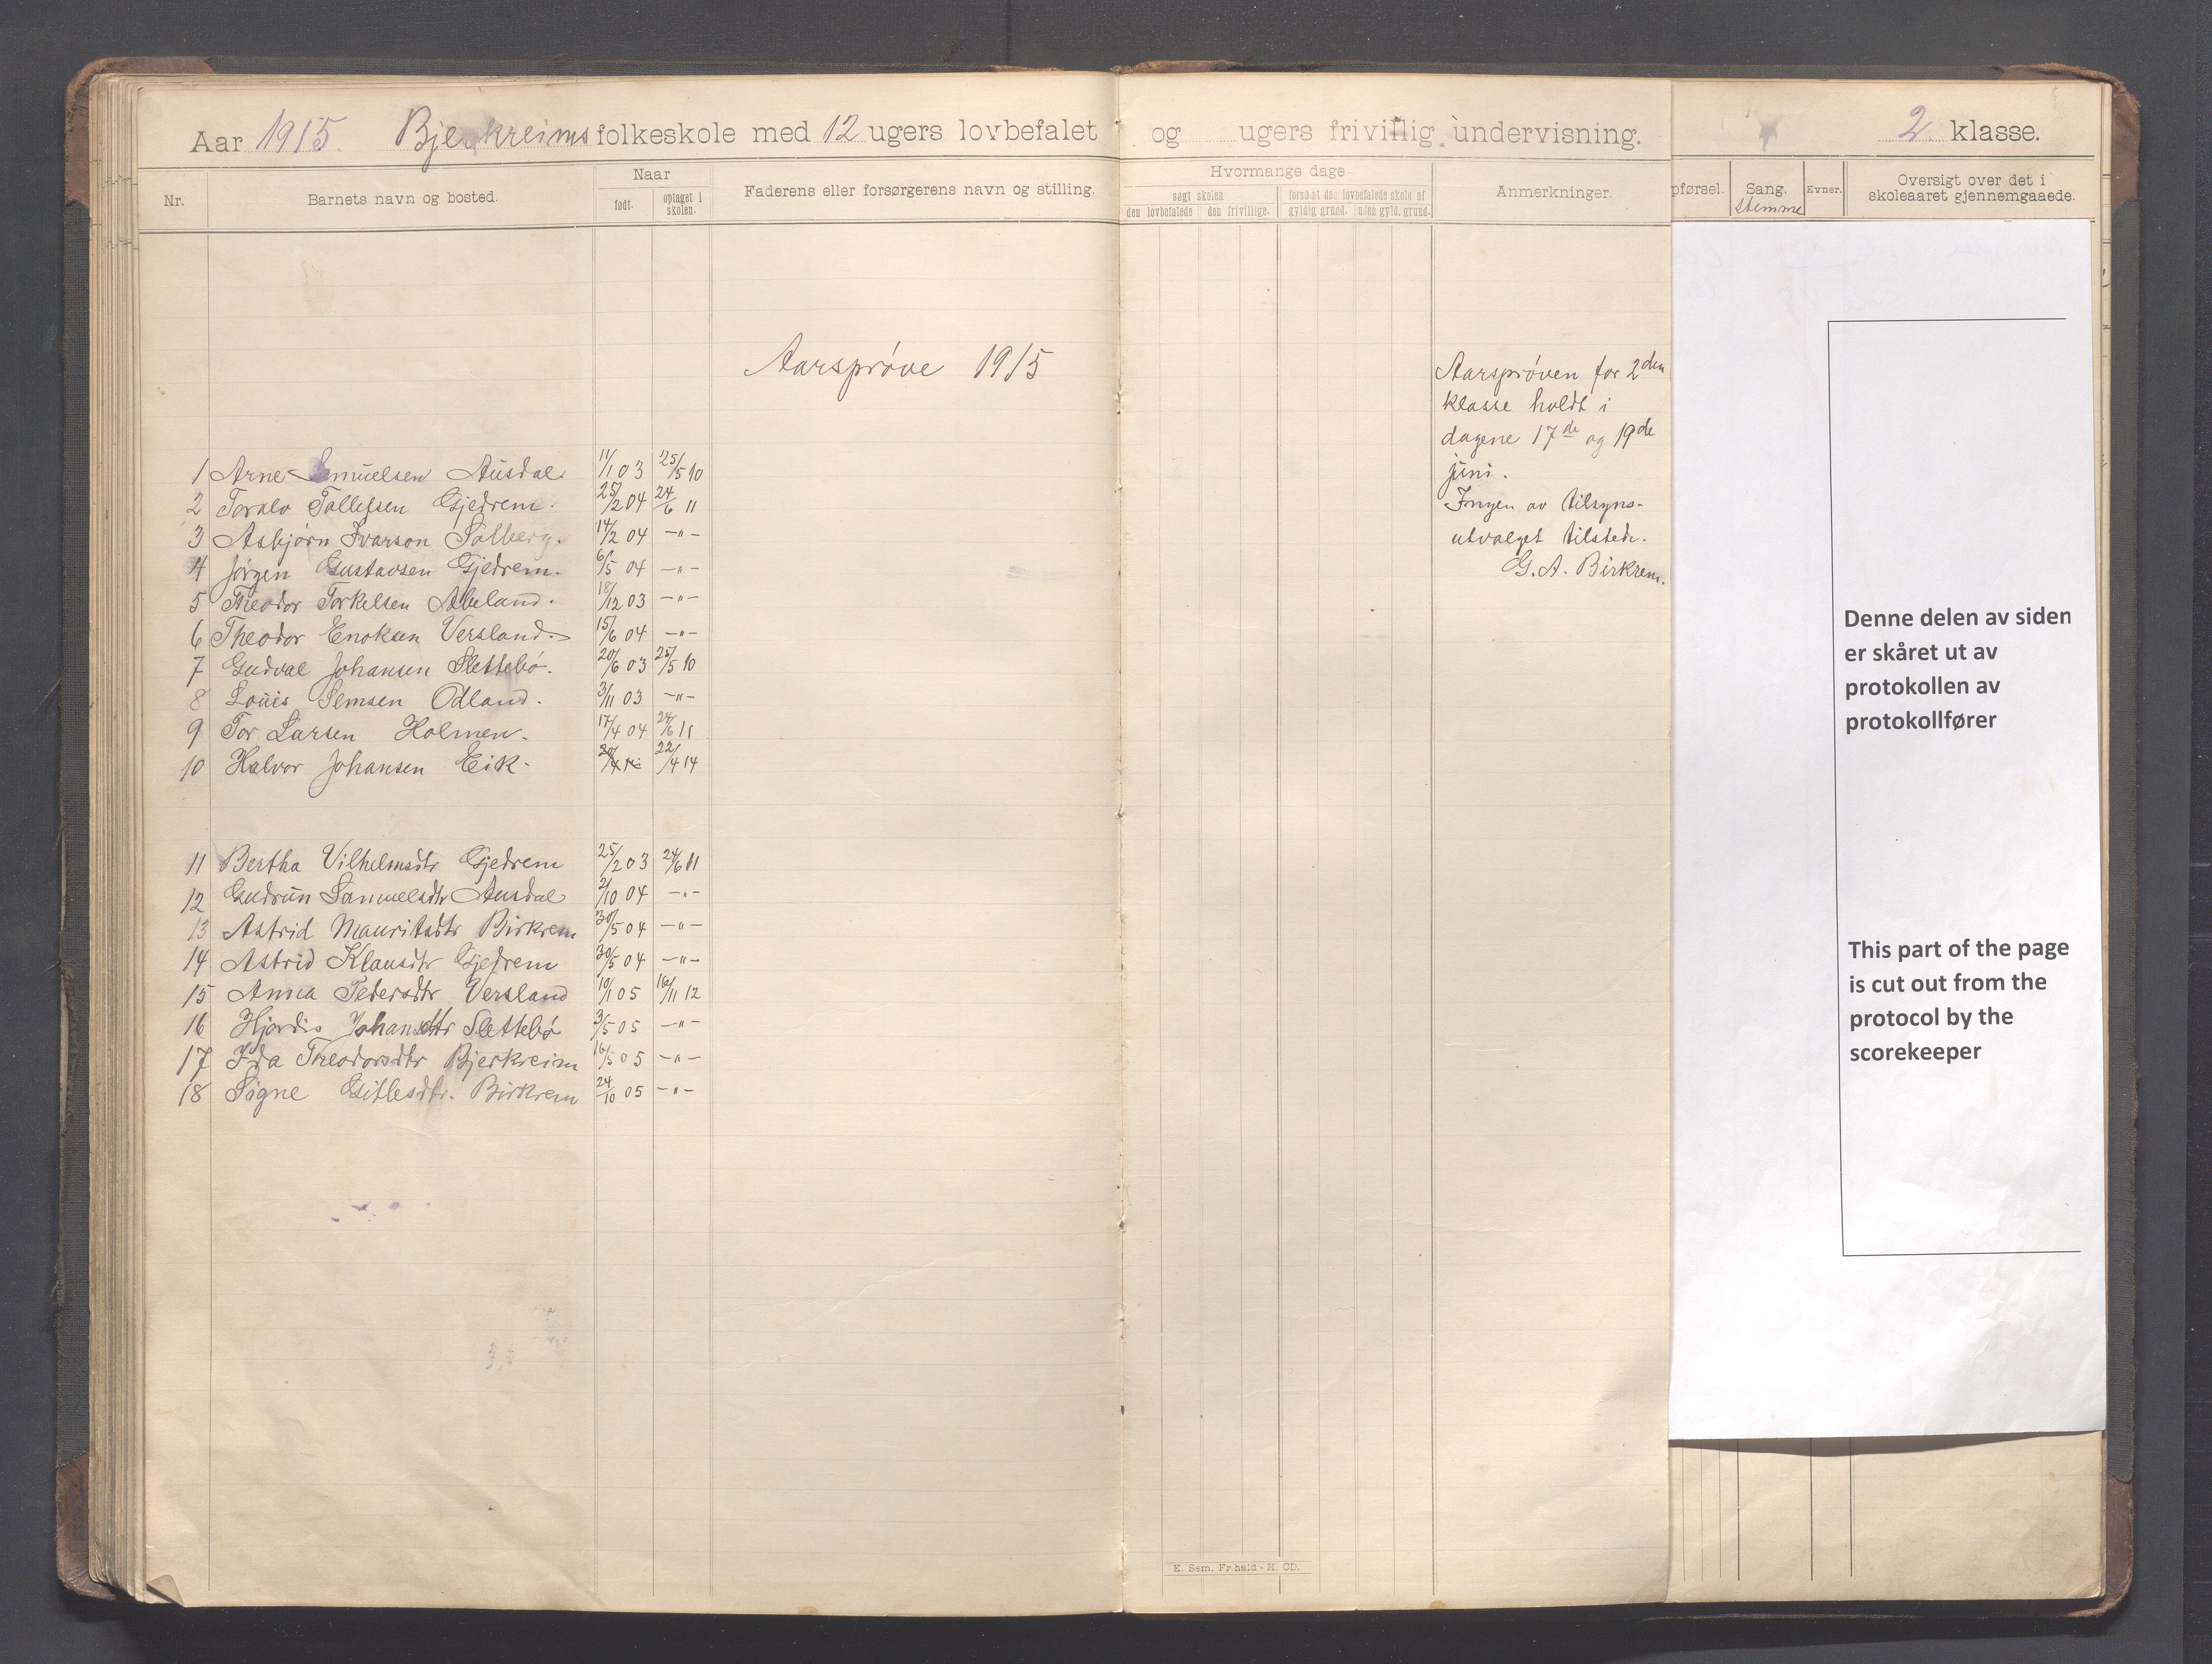 Aar 1915. Bjerkreims folkeskole med 12 ugers lovbefalet og ugers frivillig undervisning. 2. klasse.
Nr. Barnets navn og bosted. Naar født. optaget i skolen. Faderens eller forsørgerens navn og stilling.
Hvormange dage søgt skolen den lovbefalede den frivillige. forsømt den lovbefalede skole af gyldig grund. uden gyld. grund. Anmerkninger.
pførsel. Sang. stemme Evner. Oversigt over det i skoleaaret gjennemgaaede.
Aarsprøve 1915
Aarsprøven for 2den
klasse holdt i
dagene 17de og 19de
juni.
Ingen av tilsyns-
utvalget tilstede.
G. A. Birkrem.
1 Arne Smuelsen Ausdal. 11/1 03 25/5 10
2 Toralv Tollefsen Gjedrem. 25/2 04 24/6 11
3 Asbjørn Ivarson Solberg. 14/2 04 -"-
4 Jörgen Gustavsen Gjedrem. 6/5 04 -"-
5 Theodor Torkelsen Abeland. 18/12 03 -"-
6 Theodor Enoksen Versland. 15/6 04 -"-
7 Gudval Johansen Slettebö. 20/6 03 25/5 10
8 Louis Semsen Odland. 3/11 03 -"-
9 Tor Larsen Holmen. 17/4 04 24/6 11
10 Halvor Johansen Eik. 22/4 14
11 Bertha Vilhelmsdtr Gjedrem 25/2 03 24/6 11
12 Gudrun Samuelsdtr Ausdal 2/10 04 -"-
13 Astrid Mauritsdtr Birkrem 30/5 04 -"-
14 Astrid Klausdtr Gjedrem 30/5 04 -"-
15 Anna Pedersdtr Versland 10/1 05 16/11 12
16 Hjördis Johansdtr Slettebø 3/5 05 -"-
17 Ida Theodorsdtr Bjerkreim 16/5 05 -"-
18 Signe Gitlesdtr. Birkrem 24/10 05 -"-
Denne delen av siden
er skåret ut av
protokollen av
protokollfører
This part of the page
is cut out from the
protocol by the
scorekeeper
E. Sem, Fr.hald - H. CD.